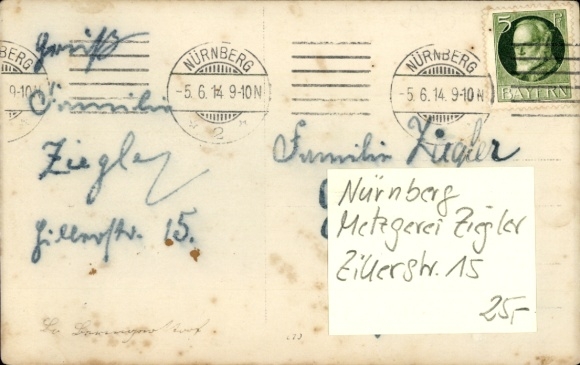 Gruß
Familie
Ziegler
Zillerstr. 15.
NÜRNBERG
-5.6.14 9-10N
2
NÜRNBERG
-5.6.14. 9-10N
9-10N
5 P
BAYERN
Familie Ziegler
Nürnberg
Metzgerei Ziegler
Zillerstr. 15
25,-